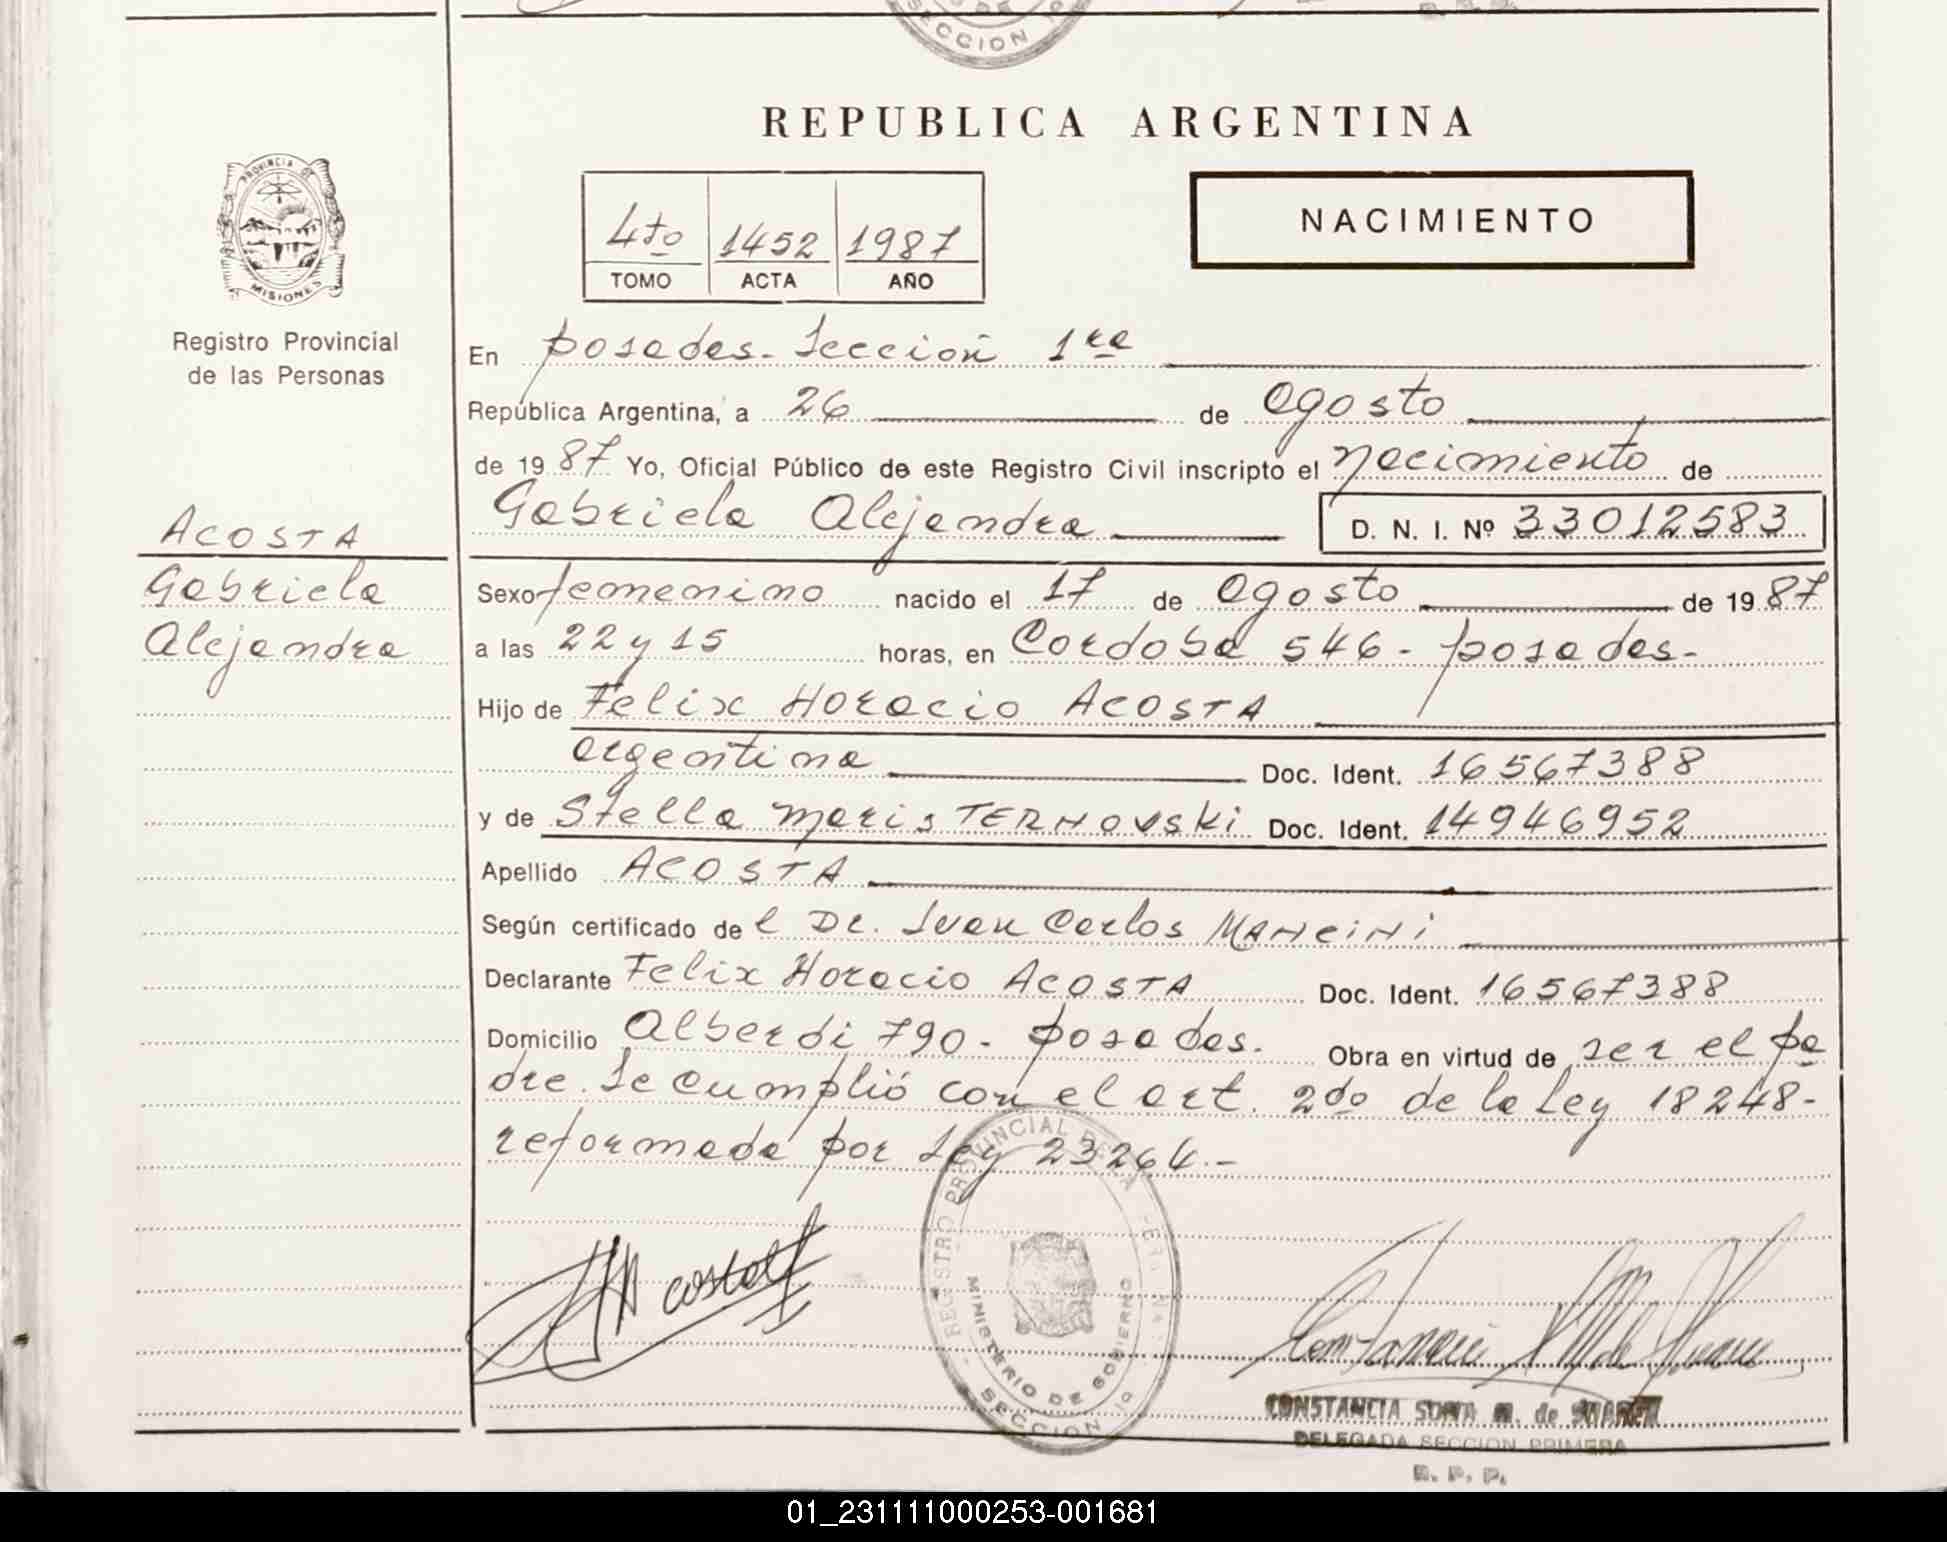 SECCION 1º
REPUBLICA ARGENTINA
PROVINCIA DE
MISIONES
Registro Provincial
de las Personas
4to 1452 1987
TOMO ACTA AÑO
NACIMIENTO
En posadas. Sección 1ra
República Argentina, a 26 de agosto
de 1987 Yo, Oficial Público de este Registro Civil inscripto el nacimiento de
Gabriela Alejandra D. N. I. Nº 33012583
ACOSTA
Gabriela
Alejandra
Sexo femenino nacido el 17 de agosto de 1987
a las 22 y 15 horas, en Cordoba 546 - posadas -
Hijo de Felix Horacio ACOSTA
argentina Doc. Ident. 16567388
y de Stella Maris TERNOVSKI Doc. Ident. 14946952
Apellido ACOSTA
Según certificado del Dr. Juan Carlos MANCINI
Declarante Felix Horacio ACOSTA Doc. Ident. 16567388
Domicilio Alberdi 790 - posadas. Obra en virtud de ser el pa
dre. Se cumplió con el art. 2do de la Ley 18248-
reformada por Ley 23264.-
REGISTRO PROVINCIAL
MINISTERIO DE GOBIERNO
SECCION 1º
CONSTANCIA SONIA M. de SUAREZ
DELEGADA SECCION PRIMERA
R. P. P.
01_231111000253-001681